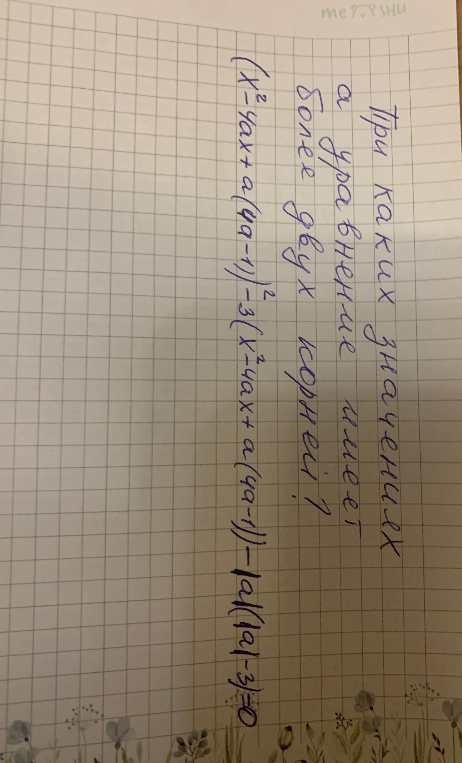 При каких значениях
а уравнение имеет
более двух корней?
(x²-4ax+a(4a-1))²-3(x²-4ax+a(4a-1))-|a|(|a|-3)=0